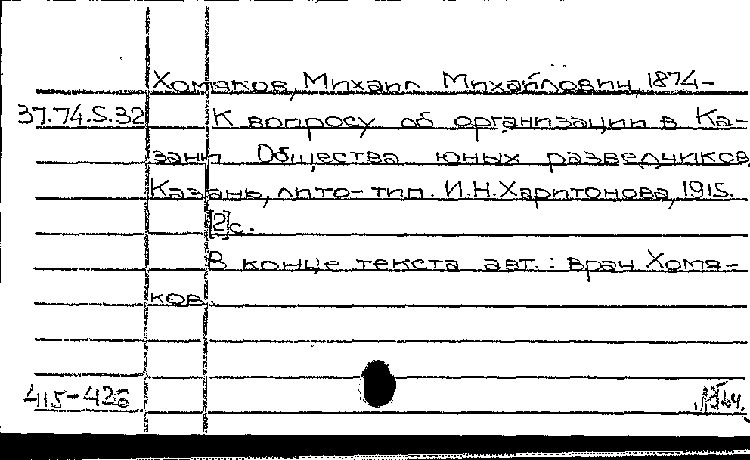 Хомяков, Михаил Михайлович, 1874-
37.74.5.32 К вопросу об организации в Ка-
зани Общества юных разведчиков.
Казань, лито-тип. И.Н.Харитонова, 1915.
[2]с.
В конце текста авт.: врач Хомя-
ков.
415-426